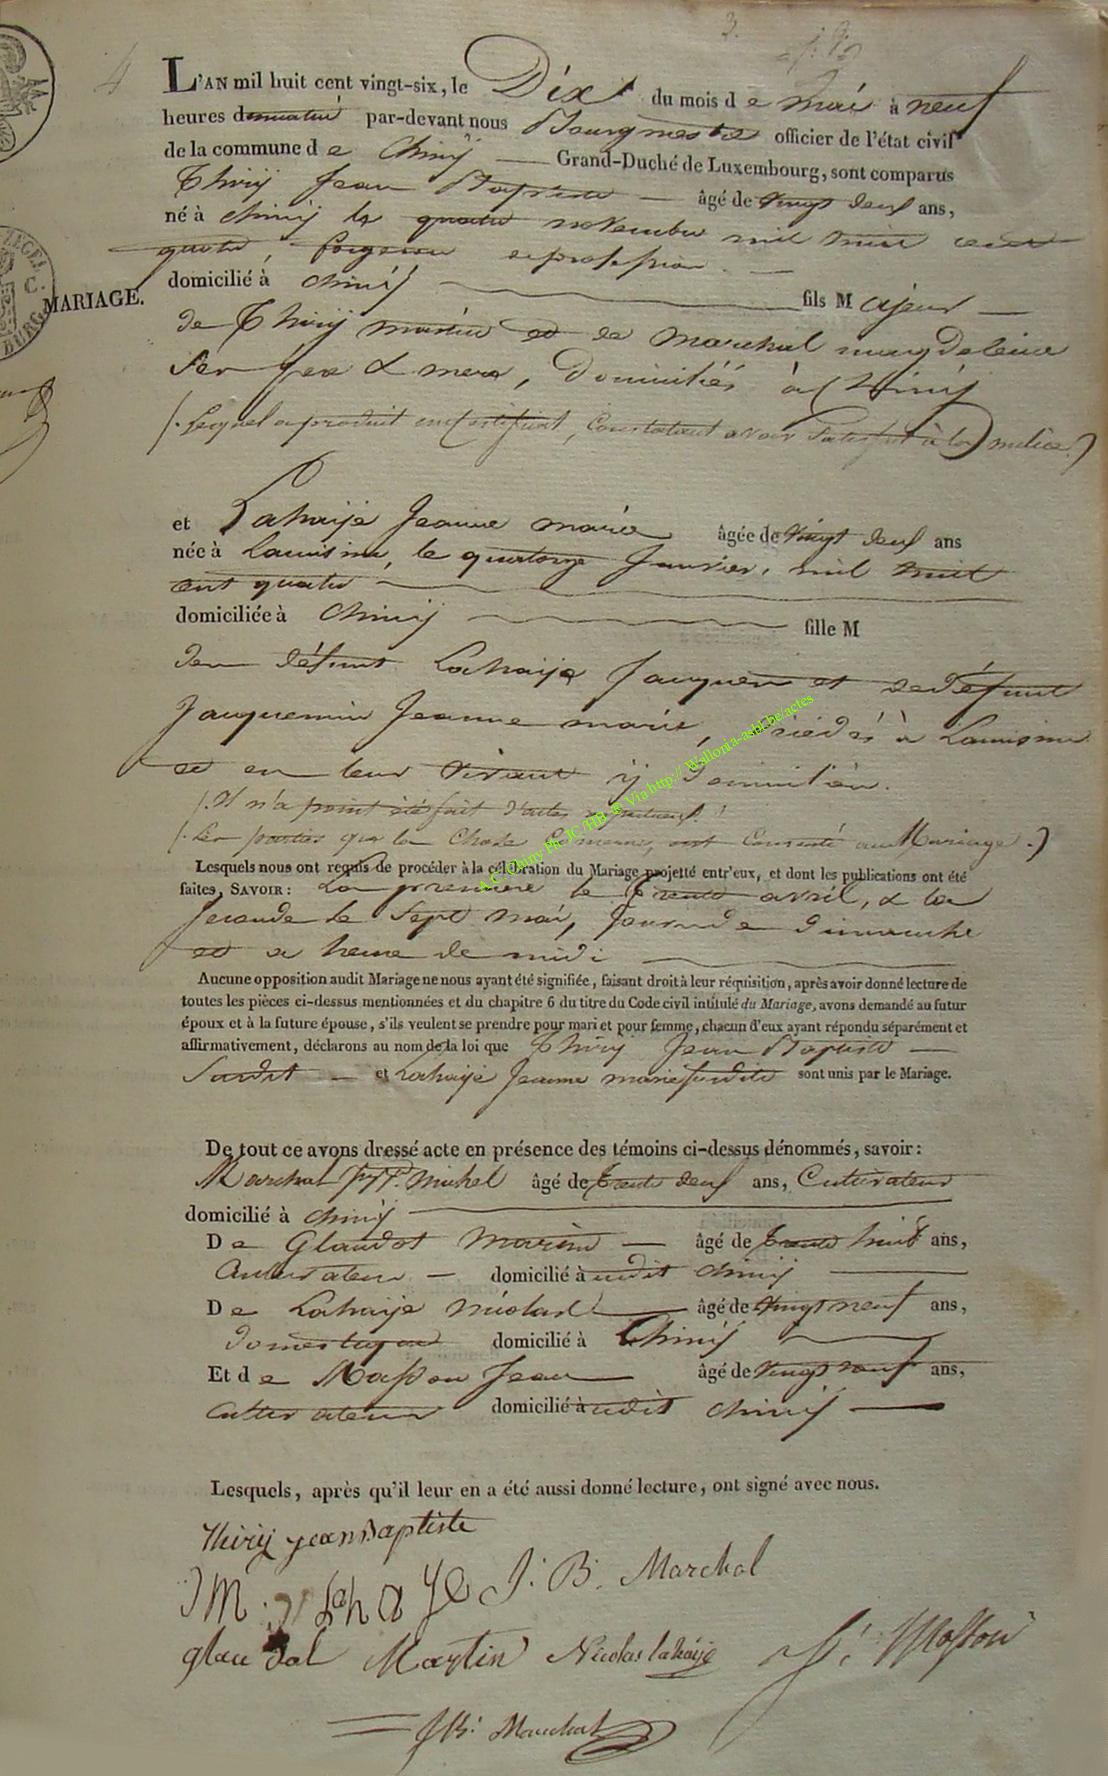 3.
4
L'AN mil huit cent vingt-six, le Dix du mois d e mai à neuf
heures du matin par-devant nous Bourgmestre officier de l'état civil
de la commune d e Chiny Grand-Duché de Luxembourg, sont comparus
Thiry Jean Baptiste âgé de vingt deux ans,
né à chiny le quatre novembre mil huit cent
quatre, forgeron de profession
MARIAGE.
domicilié à chiny fils M ajeur
de Thiry martin et de Marchal magdeleine
Ses père & mere, Domiciliés à Chiny
(. Lequel a produit un Certificat, Constatant avoir Satisfait à la milice.)
et Lahaije Jeanne marie âgée de vingt deux ans
née à Lauisme, le quatorze Janvier, mil huit
cent quatre
domiciliée à chiny fille M
den défunt Lahaije Jacques et de défunte
Jacquemin Jeanne marie, à Lauisme
et en leur vivant ij Domiciliés.
(. Il n'a point été fait d'actes
(. Les parties que la Chose Concerne, ont Consenté au Mariage .)
Lesquels nous ont requis de procéder à la célébration du Mariage projetté entr'eux, et dont les publications ont été
faites, SAVOIR : La premiere le trente avril, & la
seconde le Sept mai, Jour de dimanche
et a heure de midi
Aucune opposition audit Mariage ne nous ayant été signifiée, faisant droit à leur réquisition, après avoir donné lecture de
toutes les pièces ci-dessus mentionnées et du chapitre 6 du titre du Code civil intitulé du Mariage, avons demandé au futur
époux et à la future épouse, s'ils veulent se prendre pour mari et pour femme, chacun d'eux ayant répondu séparément et
affirmativement, déclarons au nom de la loi que Thiry Jean Baptiste
Susdit et Lahaije Jeanne marie susdite sont unis par le Mariage.
De tout ce avons dressé acte en présence des témoins ci-dessus dénommés, savoir :
Marchal michel âgé de trente deux ans, Cultivateur
domicilié à chiny
D e Glaudot Martin âgé de trente huit ans,
Cultivateur domicilié à udit chiny
D e Lahaije nicolas âgé de vingt neuf ans,
domestique domicilié à Chiny
Et d e Masson Jean âgé de vingt neuf ans,
Cultivateur domicilié à udit chiny
Lesquels, après qu'il leur en a été aussi donné lecture, ont signé avec nous.
thiry jean Baptiste
J M. lahaye J. B. Marchal
glaudot Martin Nicolas lahaije J. Masson
JB. Marchal
A.C. Chiny Ph JC /HB © Via http:// Wallonia-asbl.be/actes